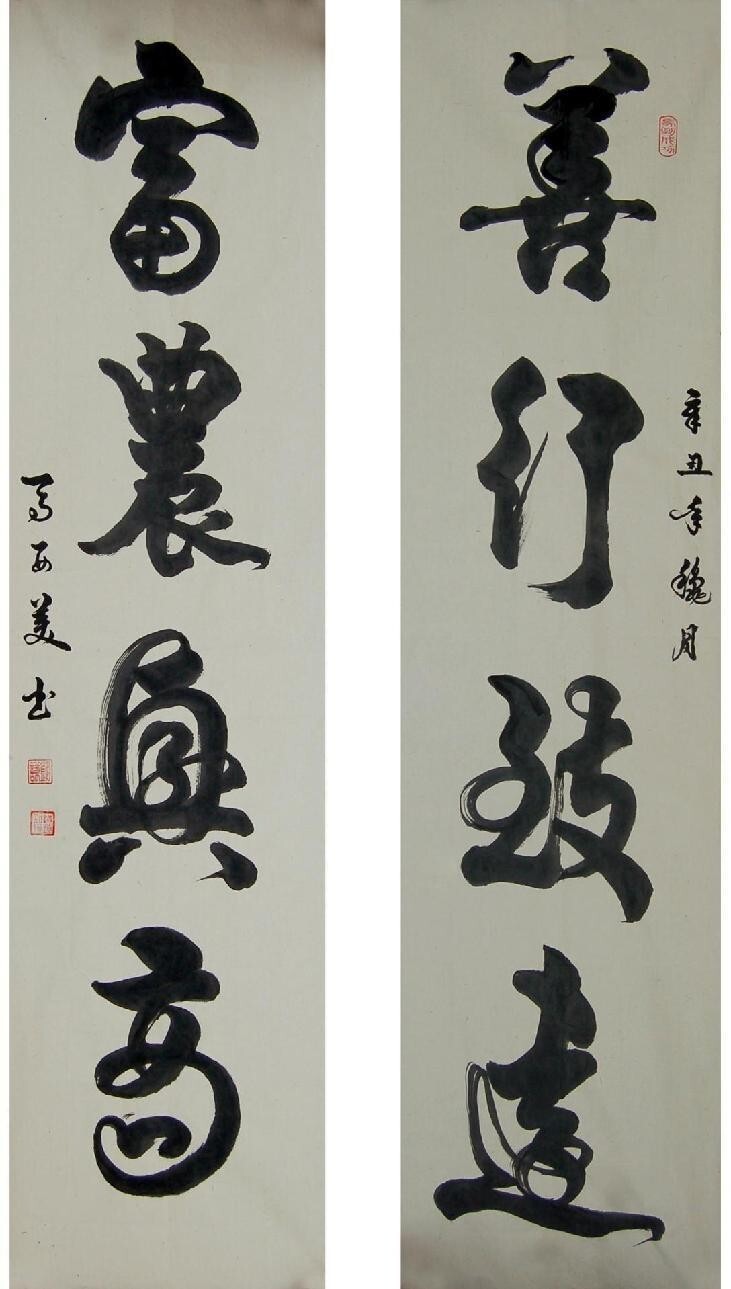 辛丑年穐月
善行致遠
富農興商
馬美书